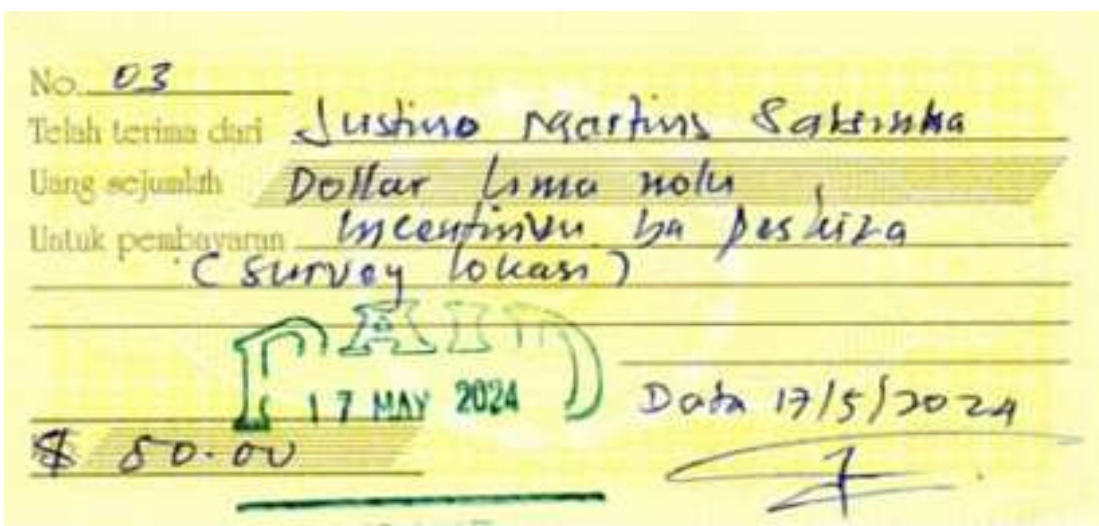 No. 03
Telah terima dari Justino Martins
Uang sejumlah Dollar Lima nolu
Untuk pembayaran Incentivu ba peskiza
(Survey lokasi)
PAID
17 MAY 2024
Data 17/5/2024
$ 50.00